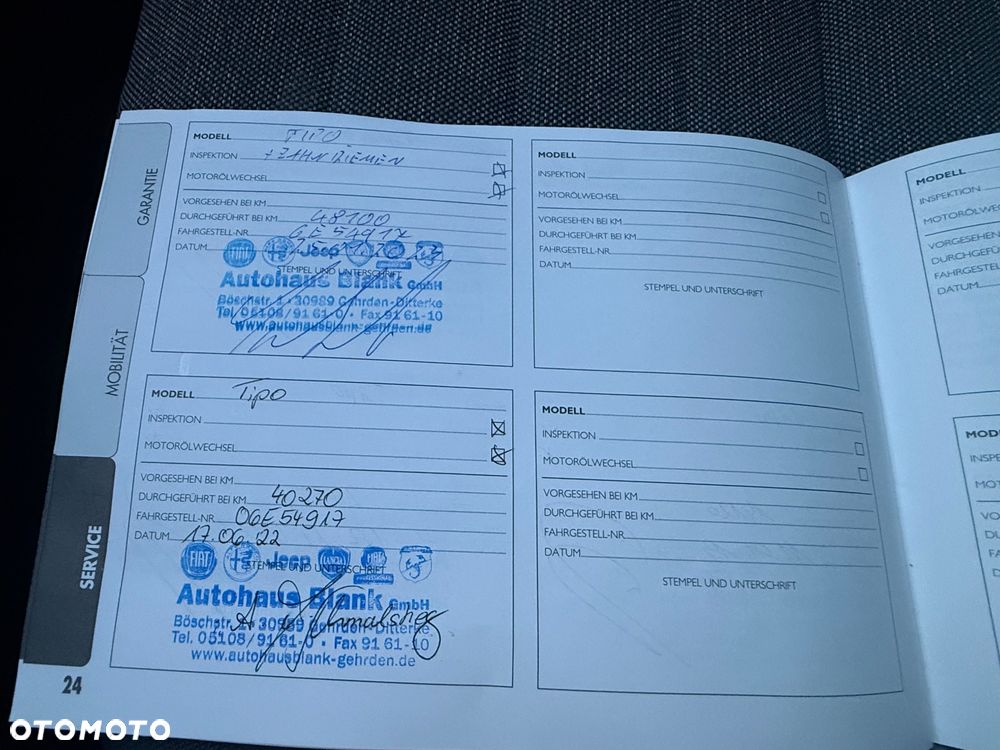 GARANTIE
MOBILITÄT
SERVICE
MODELL TIPO
INSPEKTION + ZAHNRIEMEN
MOTORÖLWECHSEL
VORGESEHEN BEI KM
DURCHGEFÜHRT BEI KM 48100
FAHRGESTELL-NR. 6E 54917
DATUM
FIAT Jeep
STEMPEL UND UNTERSCHRIFT
Autohaus Blank GmbH
Böschstr. 1 · 30989 Gehrden-Ditterke
Tel. 05108/91 61-0 · Fax 91 61-10
www.autohausblank-gehrden.de
MODELL Tipo
INSPEKTION
MOTORÖLWECHSEL
VORGESEHEN BEI KM
DURCHGEFÜHRT BEI KM 40270
FAHRGESTELL-NR. 06E54917
DATUM 17.06.22
FIAT Jeep LANCIA FIAT PROFESSIONAL
STEMPEL UND UNTERSCHRIFT
Autohaus Blank GmbH
Böschstr. 1 · 30989 Gehrden-Ditterke
Tel. 05108/91 61-0 · Fax 91 61-10
www.autohausblank-gehrden.de
24
MODELL
INSPEKTION
MOTORÖLWECHSEL
VORGESEHEN BEI KM
DURCHGEFÜHRT BEI KM
FAHRGESTELL-NR.
DATUM
STEMPEL UND UNTERSCHRIFT
MODELL
INSPEKTION
MOTORÖLWECHSEL
VORGESEHEN BEI KM
DURCHGEFÜHRT BEI KM
FAHRGESTELL-NR.
DATUM
STEMPEL UND UNTERSCHRIFT
MODELL
INSPEKTION
MOTORÖLWEC
VORGESEHEN
DURCHGEFÜH
FAHRGESTEL
DATUM
MOD
INSPE
MOT
VO
DU
FA
D
OTOMOTO